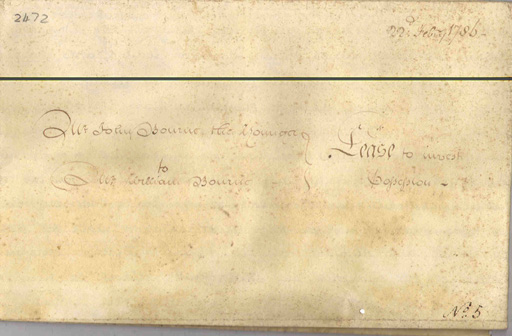 2472
22d. Feby 1786
Mr. John Bourne the Younger
Lease to invest
to
Mr. William Bourne
Possession
No. 5